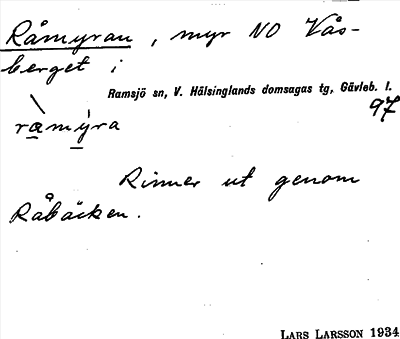 Råmyran, myr NO Vås-
berget i
Ramsjö sn, V. Hälsinglands domsagas tg, Gävleb. l.
97
ràmýra
Rinner ut genom
Råbäcken.
LARS LARSSON 1934